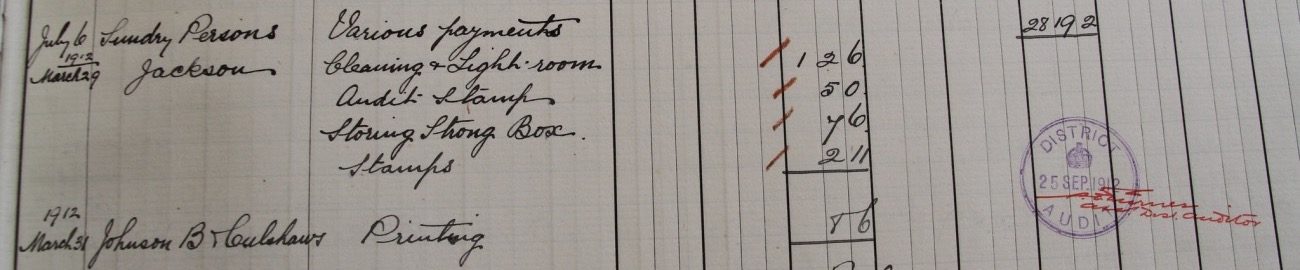 28 19 2
July 6 Sundry Persons Various payments
1912
March 29 Jackson Cleaning & Light-room 1 2 6
Audit Stamp 5 0
Storing Strong Box. 7 6
Stamps 2 11
DISTRICT
25 SEP. 1912
AUDI
Dist. Auditor
1912
March 31 Johnson B & Culshaws Printing 8 6